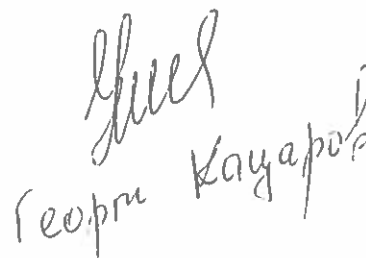 Георги Кацаров